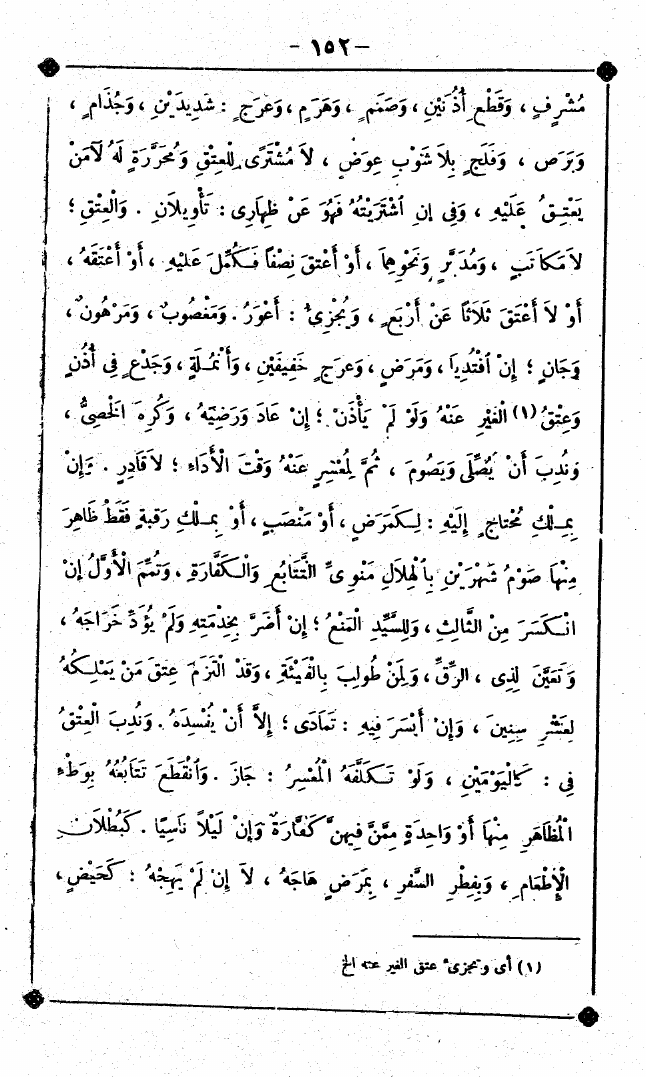 - ١٥٢ -
مُشْرِفٍ ، وَقَطْعِ أُذُنَيْنِ ، وَصَمَمٍ ، وَهَرَمٍ ، وَعَرَجٍ : شَدِيدَيْنِ ، وَجُذَامٍ ،
وَبَرَصٍ ، وَفَلَجٍ بِلَا شَوْبِ عِوَضٍ ، لَا مُشْتَرًى لِلْعِتْقِ وَمُحَرَّرَةٍ لَهُ لَا مَنْ
يَعْتِقُ عَلَيْهِ ، وَفِى إِنِ اشْتَرَيْتُهُ فَهُوَ عَنْ ظِهَارِى : تَأْوِيلَانِ . وَالْعِتْقِ ؛
لَا مَكَاتَبٍ ، وَمُدَبَّرٍ وَنَحْوِهِمَا ، أَوْ أَعْتَقَ نِصْفًا فَكُمِّلَ عَلَيْهِ ، أَوْ أَعْتَقَهُ ،
أَوْ لَا أَعْتَقَ ثَلَاثًا عَنْ أَرْبَعٍ ، وَيُجْزِئُ : أَعْوَرُ . وَمَغْصُوبٌ ، وَمَرْهُونٌ ،
وَجَانٍ ؛ إِنْ افْتُدِيَا ، وَمَرَضٍ ، وَعَرَجٍ خَفِيفَيْنِ ، وَأَنْمُلَةٍ ، وَجَدْعٍ فِى أُذُنٍ
وَعِتْقُ (١) الْغَيْرِ عَنْهُ وَلَوْ لَمْ يَأْذَنْ ؛ إِنْ عَادَ وَرَضِيَهُ ، وَكُرِهَ الْخَصِىُّ ،
وَنُدِبَ أَنْ يُصَلِّىَ وَيَصُومَ ، ثُمَّ لِمُعْسِرٍ عَنْهُ وَقْتَ الْأَدَاءِ ؛ لَا قَادِرٍ . وَإِنْ
بِمِلْكِ مُحْتَاجٍ إِلَيْهِ : لِكَمَرَضٍ ، أَوْ مَنْصَبٍ ، أَوْ بِمِلْكِ رَقَبَةٍ فَقَطْ ظَاهَرَ
مِنْهَا صَوْمُ شَهْرَيْنِ بِالْهِلَالِ مَنْوِىِّ التَّتَابُعِ وَالْكَفَّارَةِ ، وَتُمِّمَ الْأَوَّلُ إِنْ
انْكَسَرَ مِنْ الثَّالِثِ ، وَلِلسَّيِّدِ الْمَنْعُ ؛ إِنْ أَضَرَّ بِخِدْمَتِهِ وَلَمْ يُؤَدِّ خَرَاجَهُ ،
وَتَعَيَّنَ لِذِى ، الرِّقِّ ، وَلِمَنْ طُولِبَ بِالْفَيْئَةِ ، وَقَدْ الْتَزَمَ عِتْقَ مَنْ يَمْلِكُهُ
لِعَشْرِ سِنِينَ ، وَإِنْ أَيْسَرَ فِيهِ : تَمَادَى ؛ إِلَّا أَنْ يُفْسِدَهُ . وَنُدِبَ الْعِتْقُ
فِى : كَالْيَوْمَيْنِ ، وَلَوْ تَكَلَّفَهُ الْمُعْسِرُ : جَازَ . وَانْقَطَعَ تَتَابُعُهُ بِوَطْءِ
الْمُظَاهَرِ مِنْهَا أَوْ وَاحِدَةٍ مِمَّنْ فِيهِنَّ كَفَّارَةٌ وَإِنْ لَيْلًا نَاسِيًا . كَبُطْلَانِ
الْإِطْعَامِ ، وَبِفِطْرِ السَّفَرِ ، بِمَرَضٍ هَاجَهُ ، لَا إِنْ لَمْ يَهِجْهُ : كَحَيْضٍ ،
(١) أى ويجزئ عتق الغير عنه الخ